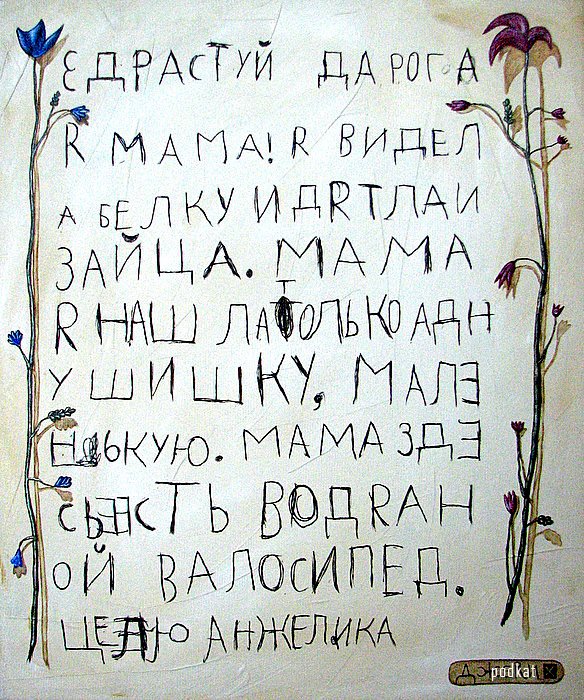 ЄДРАСТУЙ ДАРОГА
R МАМА! R ВИДЕЛ
А БЕЛКУ И ДRТЛА И
ЗАЙЦА. МАМА
R НАШЛА ТОЛЬКО АДН
У ШИШКУ, МАЛЭ
НЬКУЮ. МАМА ЗДЭ
СЬ ЕСТЬ ВОДRАН
ОЙ ВАЛОСИПЕД.
ЩЕЛУЮ АНЖЕЛИКА
podkat